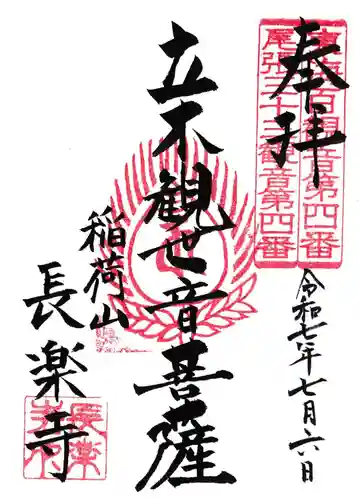 奉拝
東海百観音第四番
尾張三十三観音第四番
令和七年七月六日
立木観世音菩薩
稲荷山
長楽寺